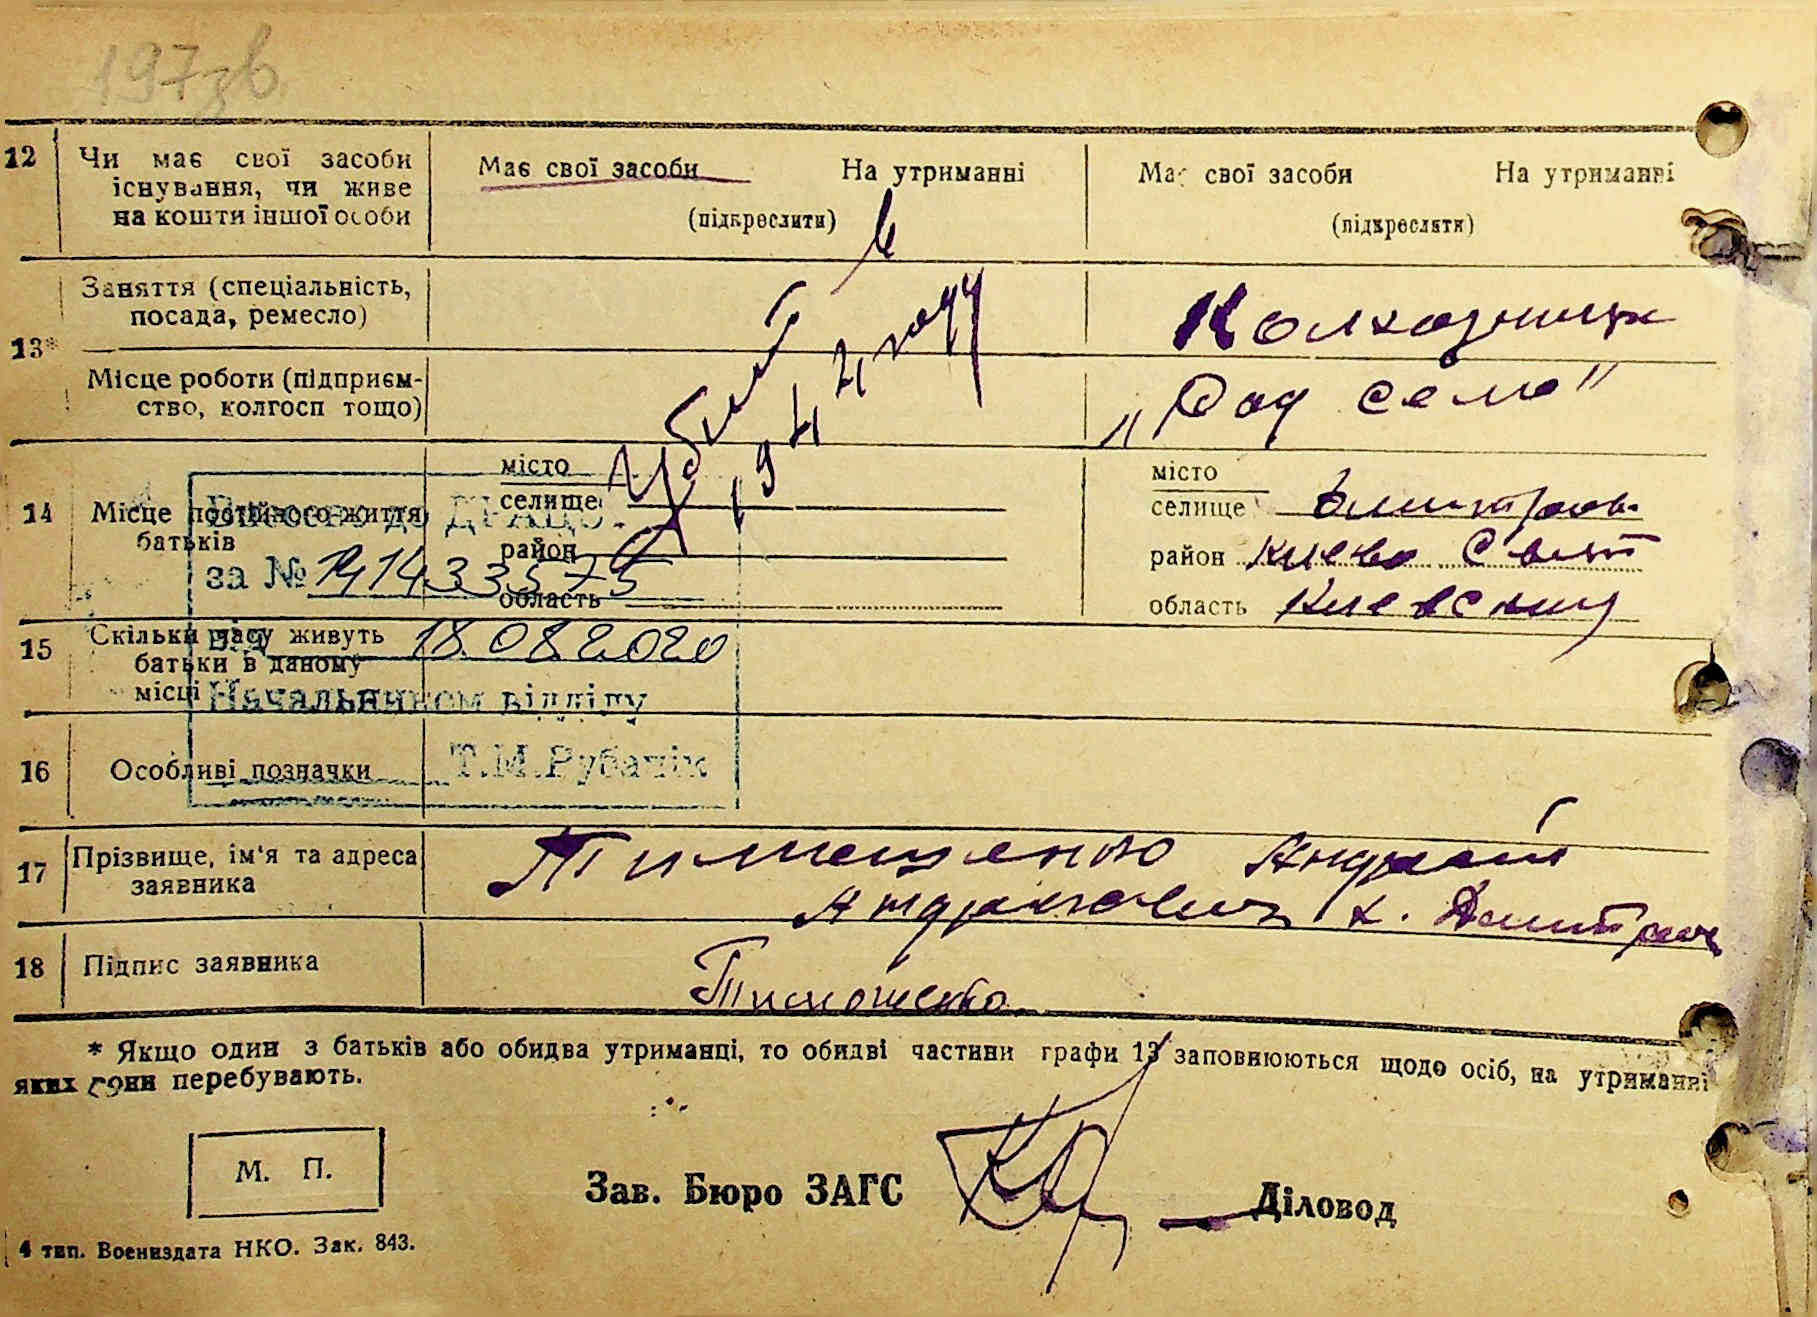 197зв.
12 Чи має свої засоби існування, чи живе на кошти іншої особи
Має свої засоби На утриманні
(підкреслити)
Має свої засоби На утриманні
(підкреслити)
13*
Заняття (спеціальність, посада, ремесло)
Колхозница
Місце роботи (підприєм-
ство, колгосп тощо)
„Рад село"
Убит в
1944 году
14 Місце постійного життя батьків
місто
селище
район
область
місто
селище Дмитров.
район Киево Свят
область Киевский
Внесено до ДРАЦС
за № 141433575
від 18.08.2020
Начальником відділу
Т.М.Рубачік
15 Скільки часу живуть
батьки в даному
місці
16 Особливі позначки
17 Прізвище, ім'я та адреса
заявника
Тимошенко Андрей
Андреевич х. Дмитров
18 Підпис заявника
Тимошенко
* Якщо один з батьків або обидва утриманці, то обидві частини графи 13 заповнюються щодо осіб, на утриманні
яких вони перебувають.
М. П.
Зав. Бюро ЗАГС
Діловод
4 тип. Воениздата НКО. Зак. 843.